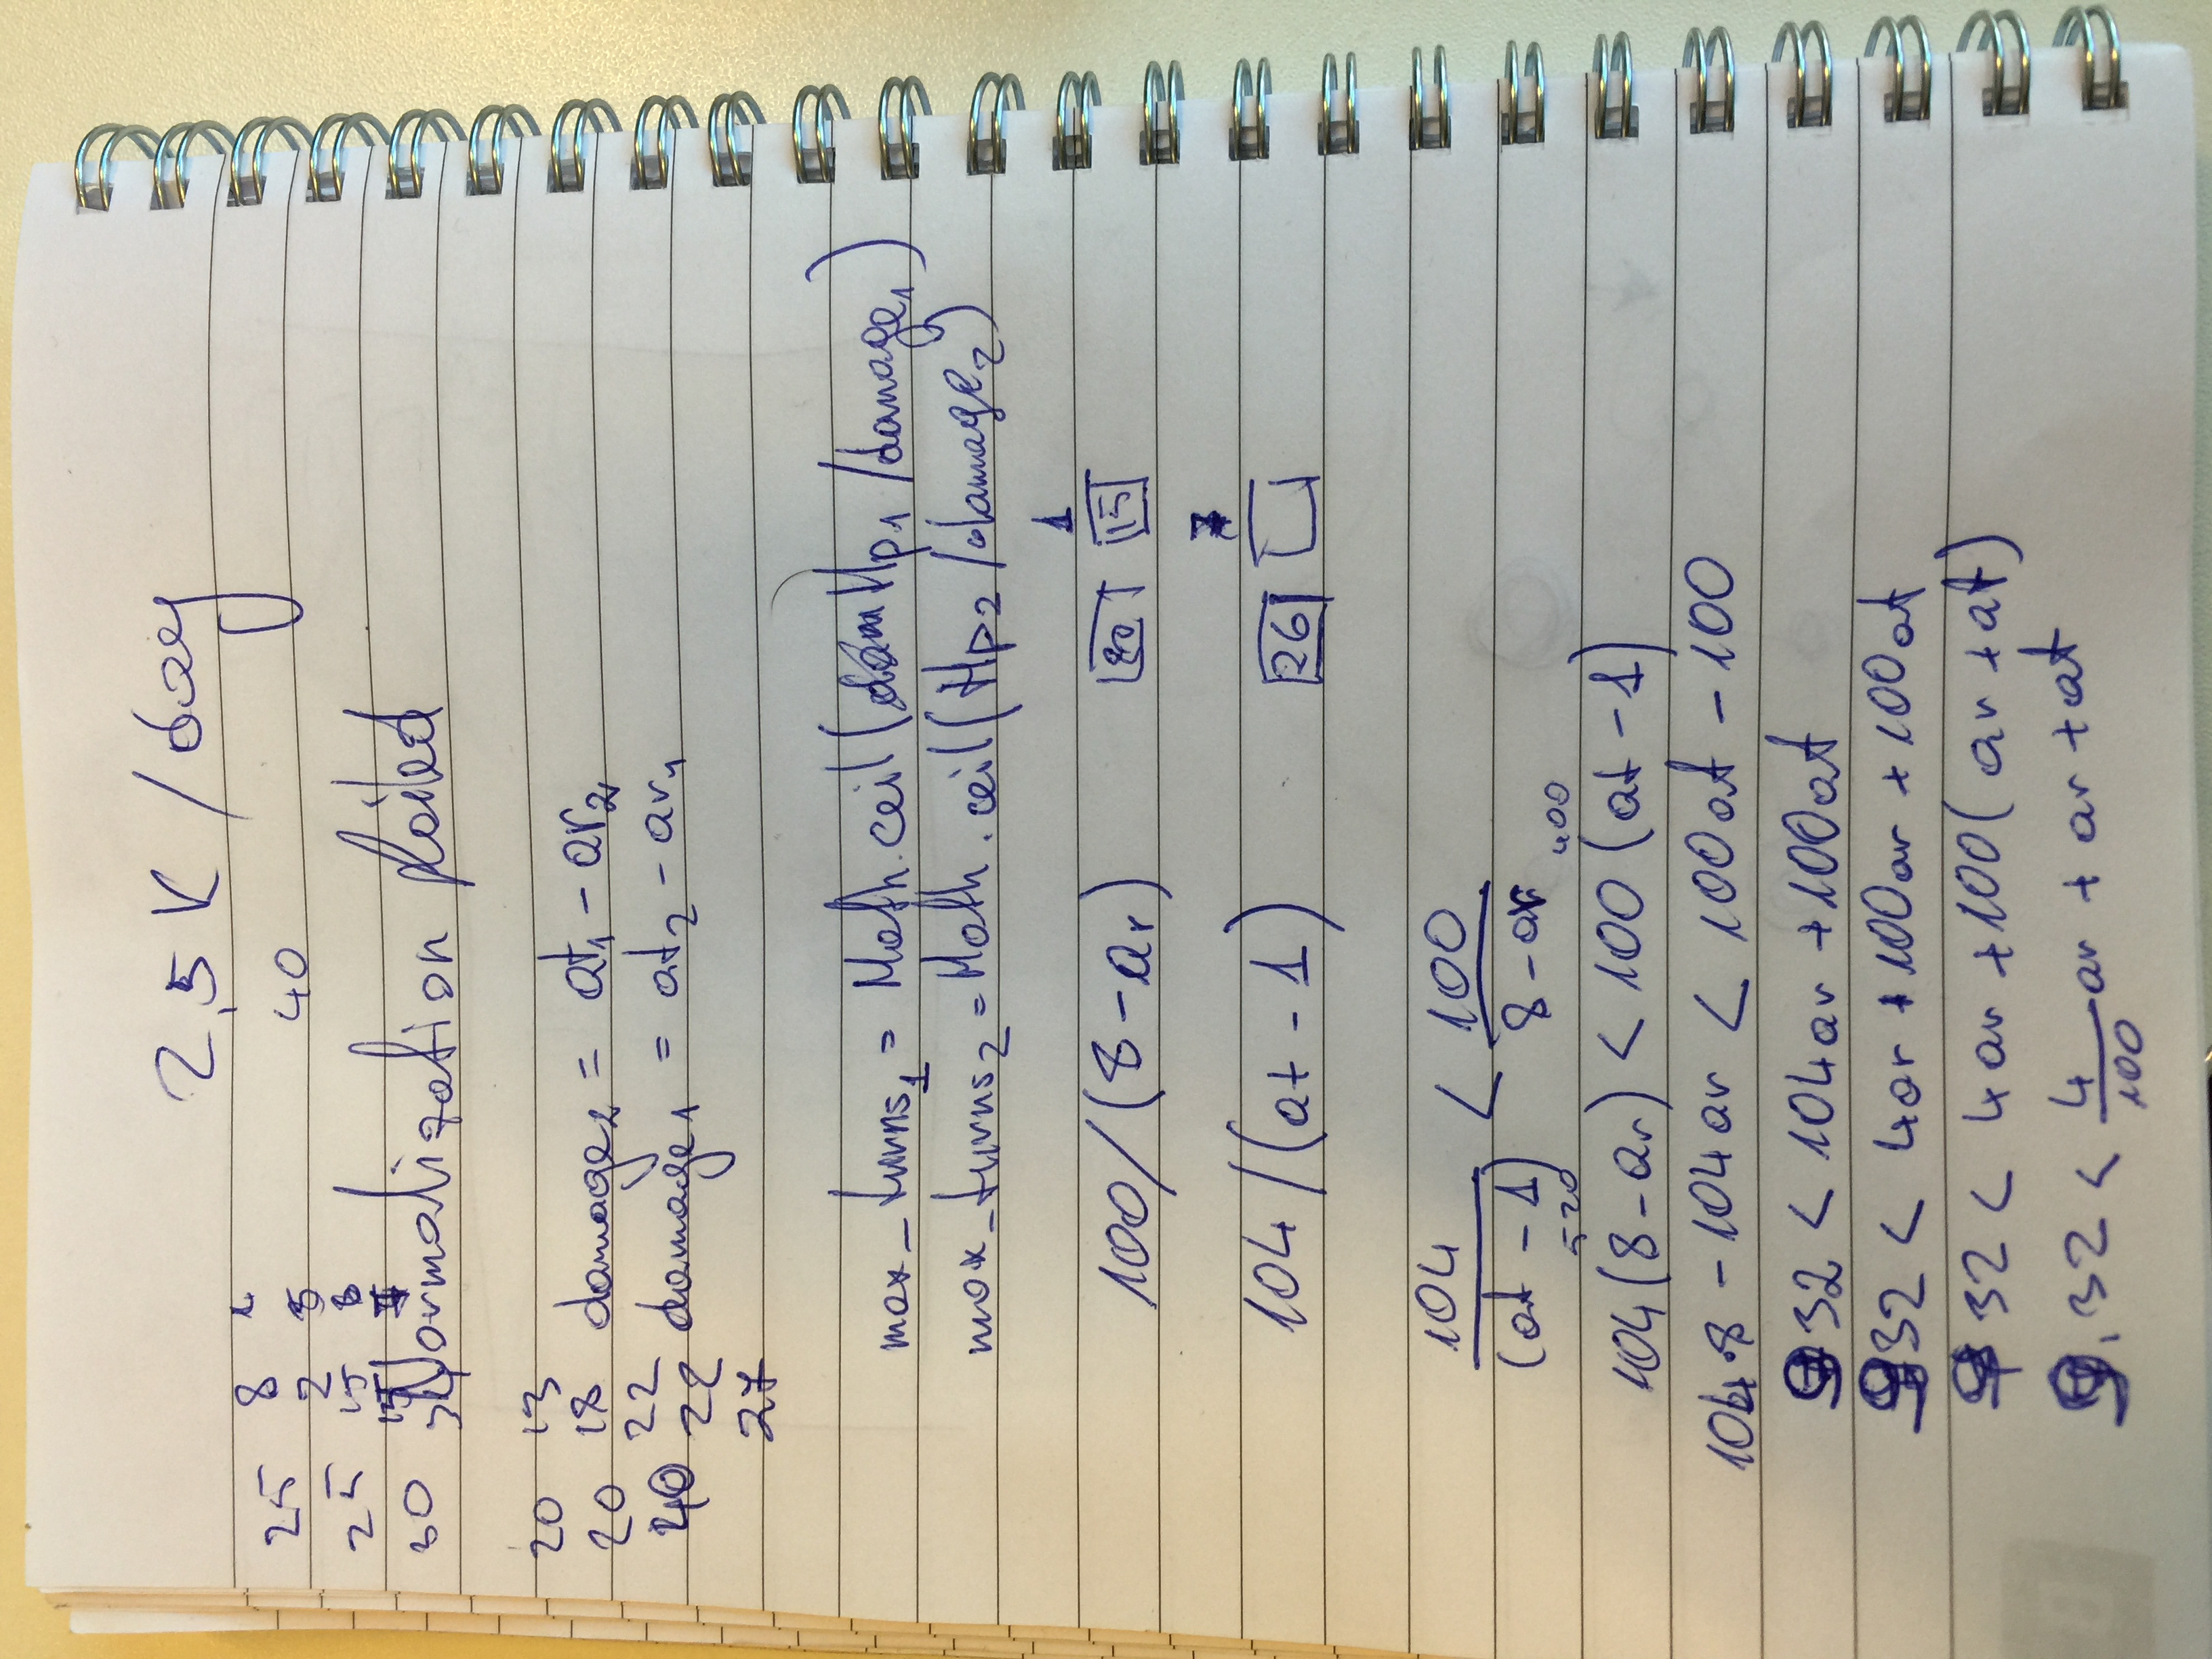 2,5 K / day
25 8 1
2 5
40
25 15 8
30 34
Normalization failed
20 13
20 18 damage2 = at1 - ar2
40 22 damage1 = at2 - ar1
22
27
max_turns1 = Math.ceil(Hp1 /damage1)
max_turns2 = Math.ceil(Hp2 /damage2)
1
100/(8-ar) 15
104/(at - 1) 26
104/(at - 1) < 100/8-ar
520 400
104(8-ar) < 100 (at - 1)
104·8 - 104ar < 100at - 100
932 < 104ar + 100at
932 < 4ar + 100ar + 100at
932 < 4ar + 100(ar + at)
9.32 < 4/100 ar + ar + at